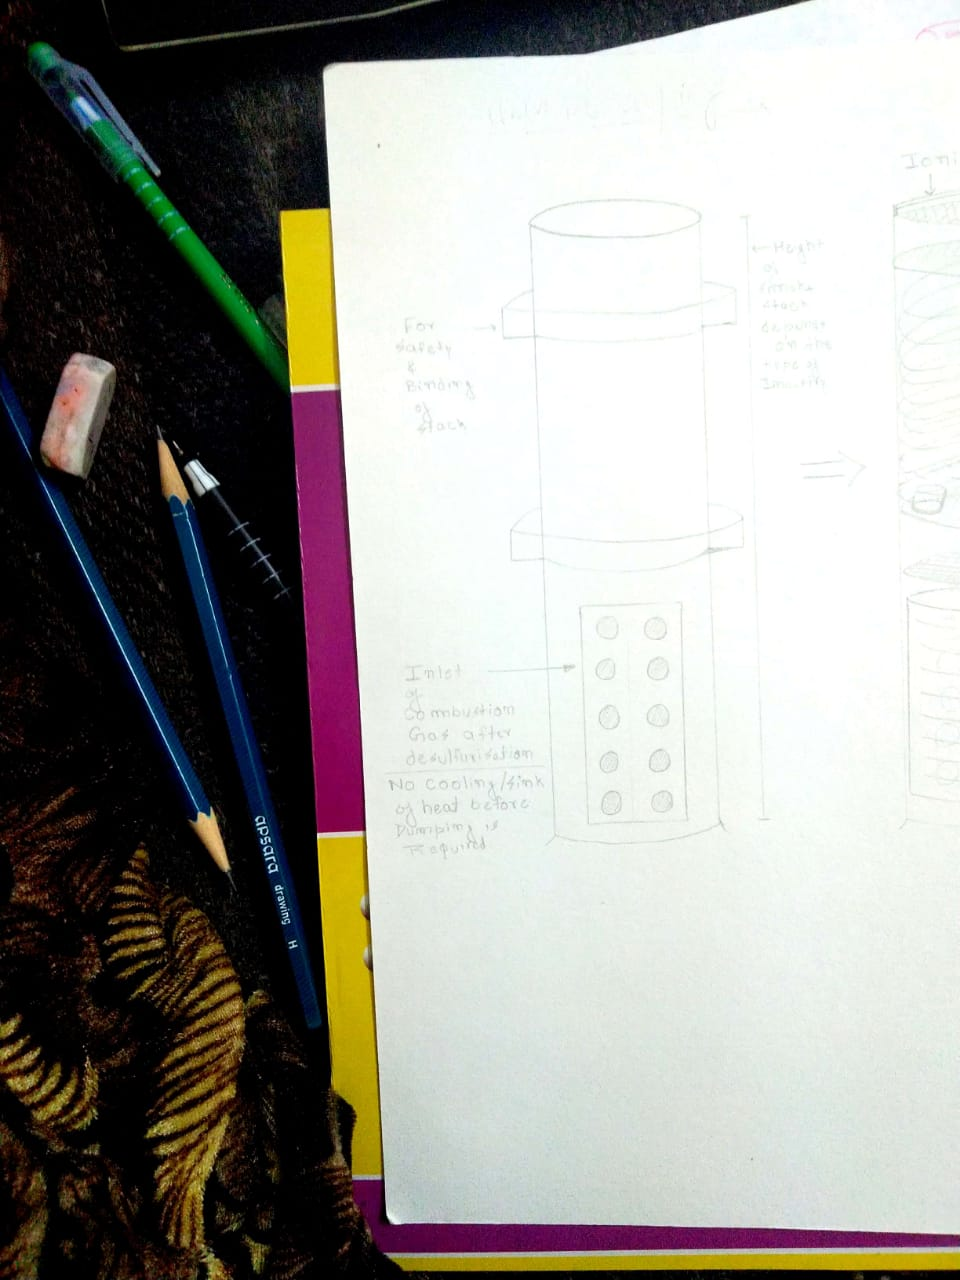 Ioni
For
safety
&
Binding
of
stack
Height
of
smoke
stack
depends
on the
type of
Industry
Inlet
of
Combustion
Gas after
desulfurisation
No cooling/sink
of heat before
Dumping is
Required
apsara drawing H